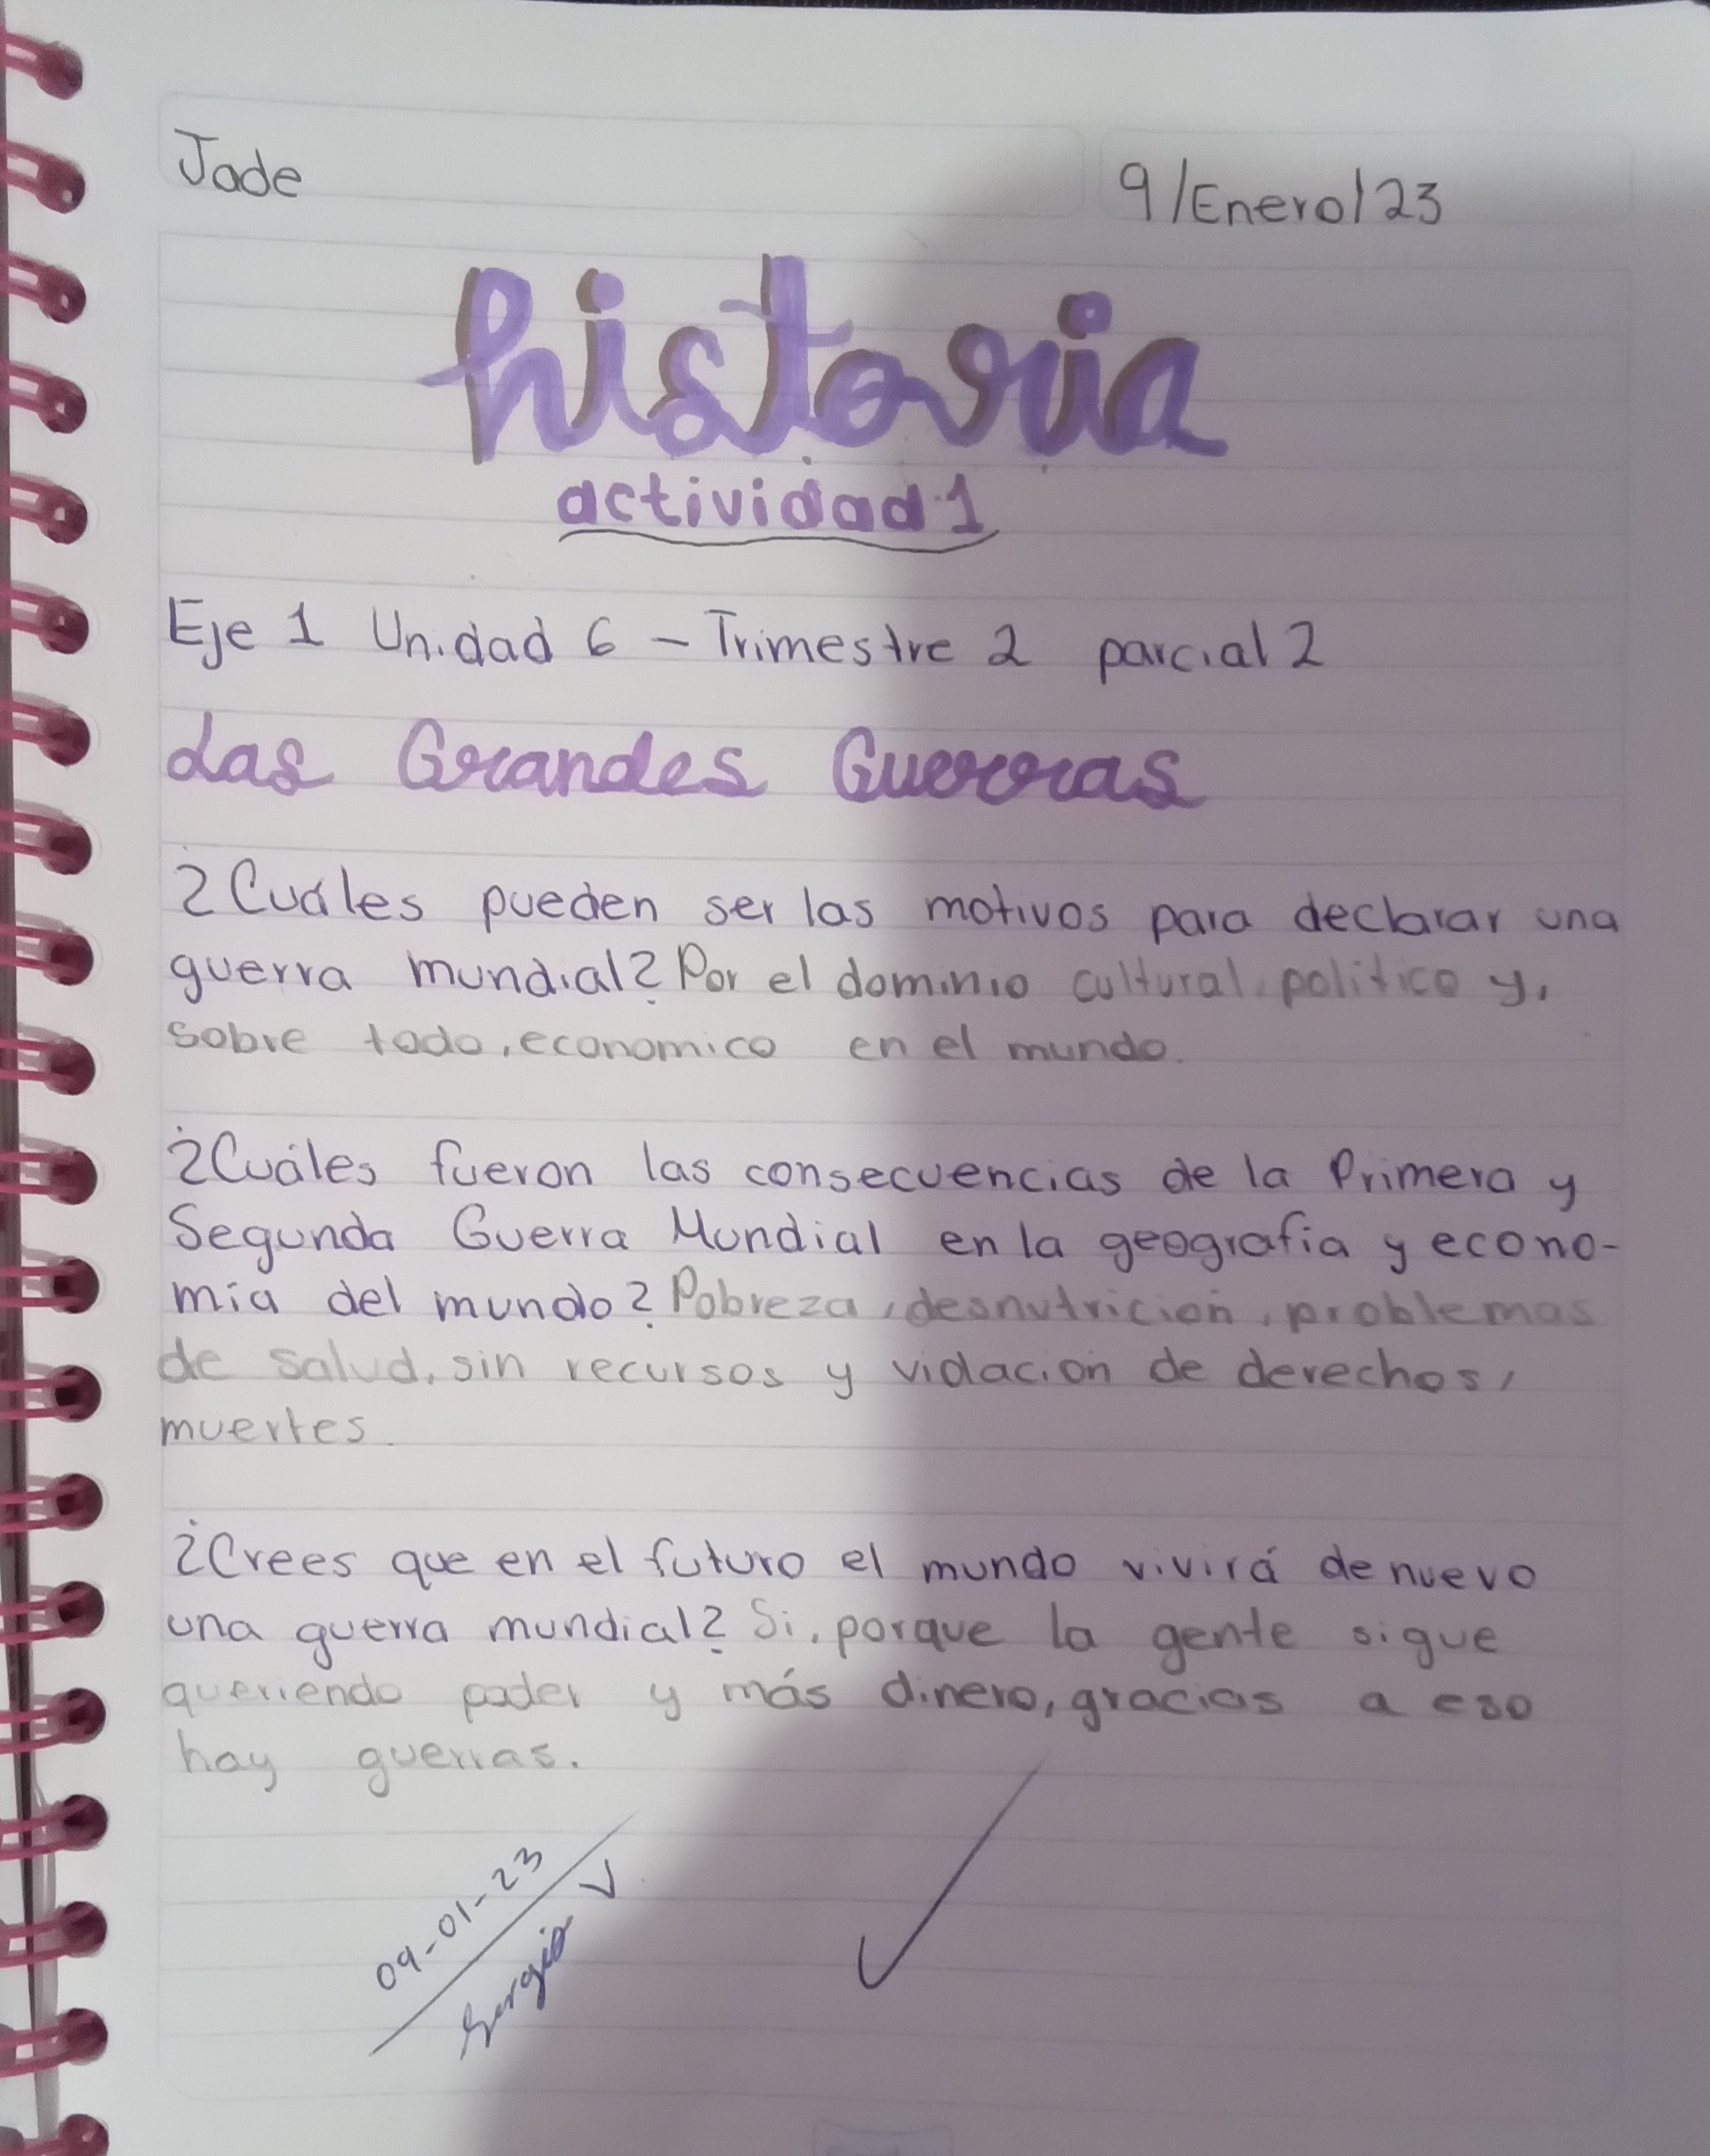 Jade
9/Enero/23
historia
actividad 1
Eje 1 Unidad 6 - Trimestre 2 parcial 2
Las Grandes Guerras
¿Cuáles pueden ser las motivos para declarar una
guerra mundial? Por el dominio cultural, politico y,
sobre todo, economico en el mundo.
¿Cuáles fueron las consecuencias de la Primera y
Segunda Guerra Mundial en la geografia y econo-
mia del mundo? Pobreza, desnutrición, problemas
de salud, sin recursos y violación de derechos,
muertes.
¿Crees que en el futuro el mundo vivirá de nuevo
una guerra mundial? Si, porque la gente sigue
queriendo poder y más dinero, gracias a eso
hay guerras.
09-01-23
Sergio V